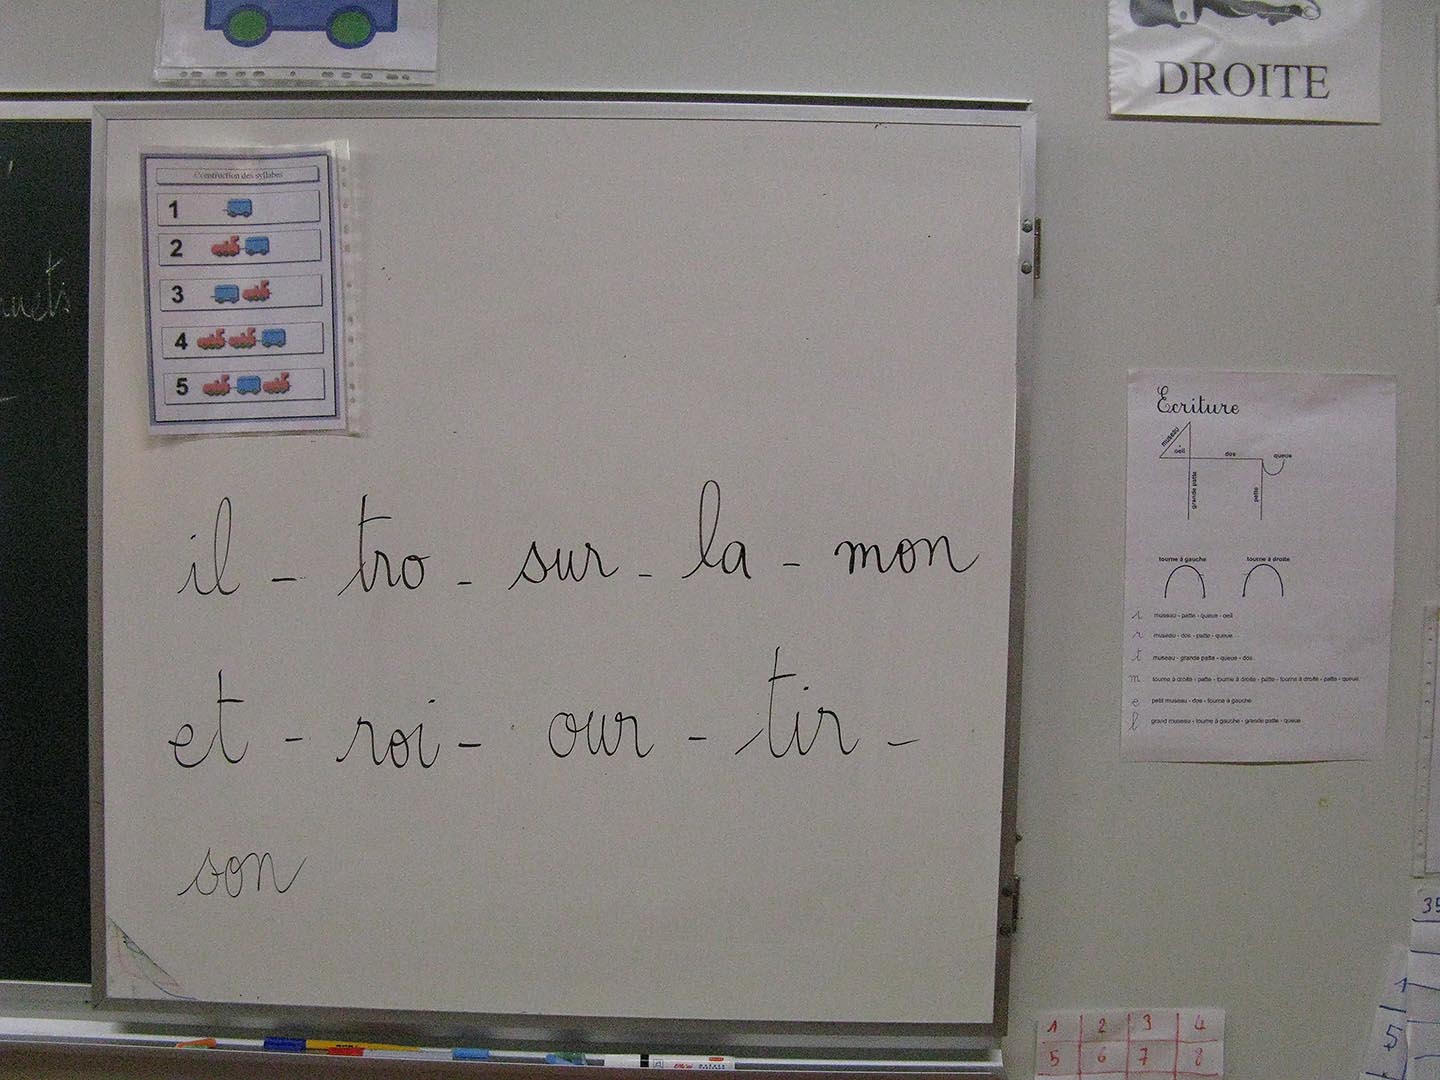 DROITE
Construction des syllabes
1
2
3
4
5
il - tro - sur - la - mon
et - roi - our - tir -
son
Ecriture
museau
oeil
dos
queue
grande patte
patte
tourne à gauche
tourne à droite
i museau - patte - queue - oeil
r museau - dos - patte - queue
t museau - grande patte - queue - dos
m tourne à droite - patte - tourne à droite - patte - tourne à droite - patte - queue
e petit museau - dos - tourne à gauche
l grand museau - tourne à gauche - grande patte - queue
1 2 3 4
5 6 7 8
35
1
5